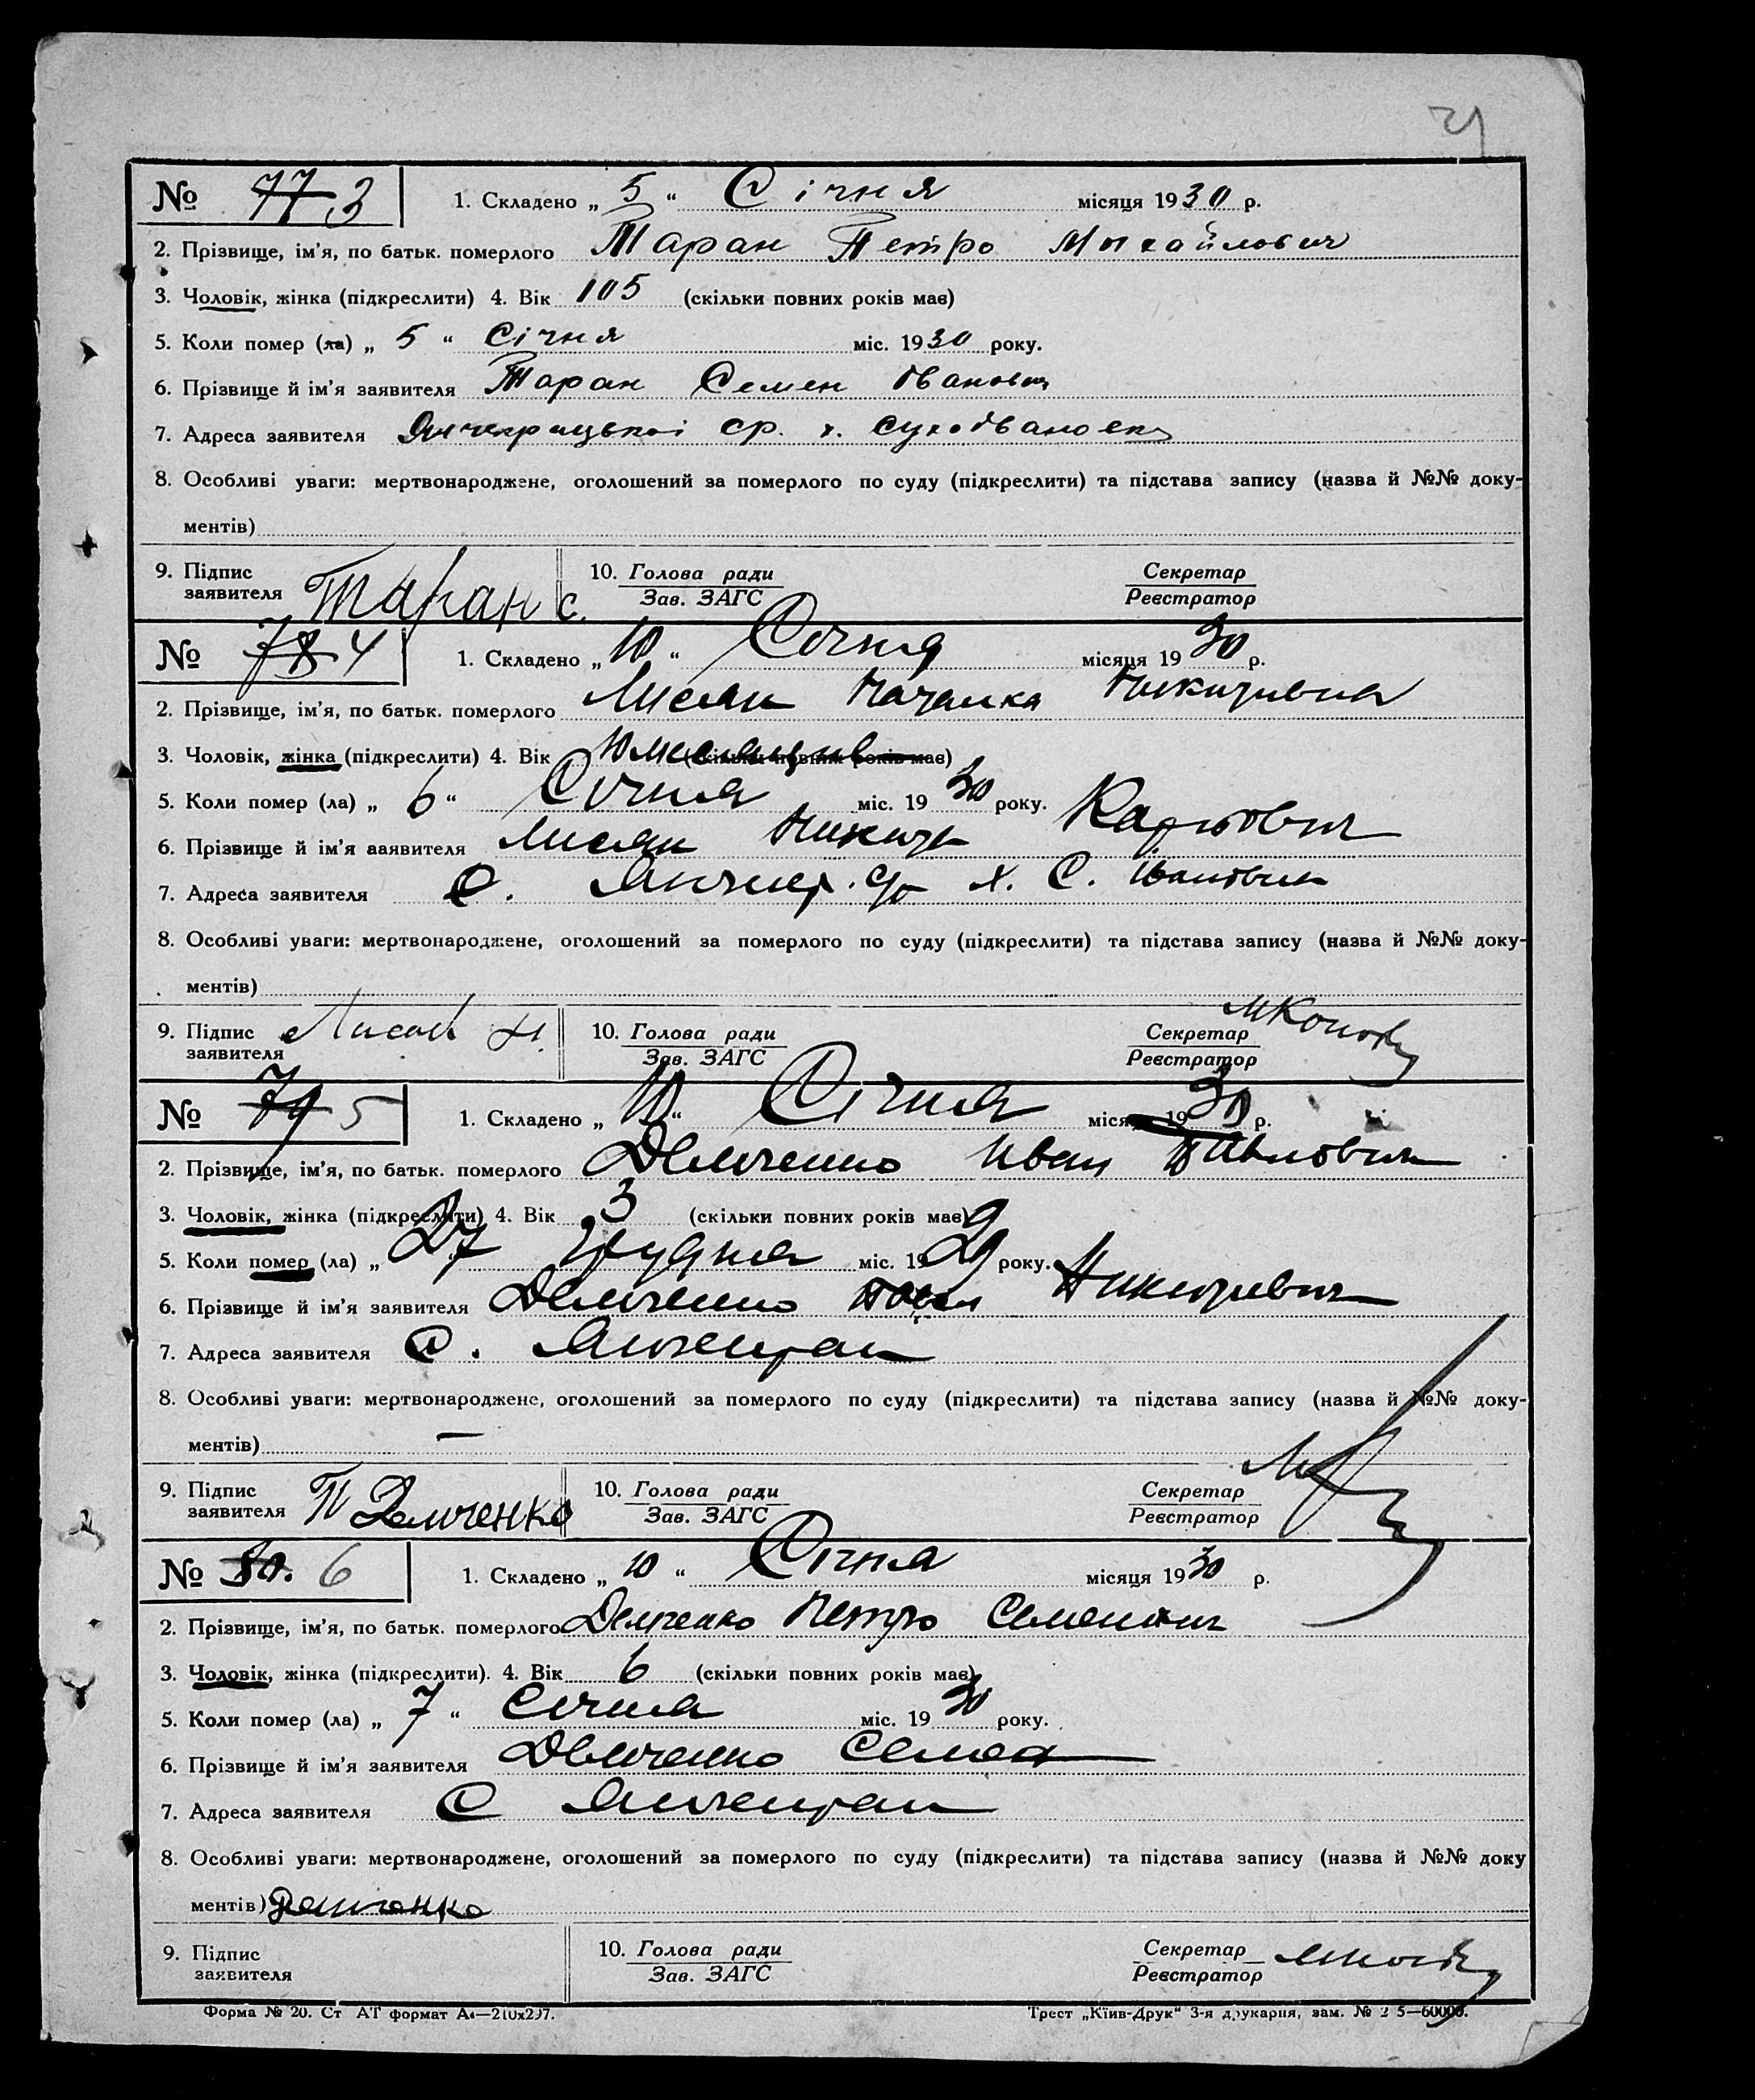 21
№ 77 3 1. Складено „ 5 “ Січня місяця 1930 р.
2. Прізвище, ім’я, по батьк. померлого Таран Петро Михайлович
3. Чоловік, жінка (підкреслити) 4. Вік 105 (скільки повних років має)
5. Коли помер (ла) „ 5 “ Січня міс. 1930 року.
6. Прізвище й ім’я заявителя Таран Семен Іванович
7. Адреса заявителя Янчекрацької ср. х. СухоІвановка
8. Особливі уваги: мертвонароджене, оголошений за померлого по суду (підкреслити) та підстава запису (назва й №№ доку-
ментів)
9. Підпис заявителя Таран С. 10. Голова ради Секретар
Зав. ЗАГС Реєстратор
№ 78 4 1. Складено „ 10 “ Січня місяця 1930 р.
2. Прізвище, ім’я, по батьк. померлого Лисак Никитовна
3. Чоловік, жінка (підкреслити) 4. Вік 10 месяцив (скільки повних років має)
5. Коли помер (ла) „ 6 “ Січня міс. 1930 року.
6. Прізвище й ім’я заявителя Лисак Никита Карпович
7. Адреса заявителя С. Янчекр. ср х. С. Івановка
8. Особливі уваги: мертвонароджене, оголошений за померлого по суду (підкреслити) та підстава запису (назва й №№ доку-
ментів)
9. Підпис заявителя Лисак Н. 10. Голова ради Секретар
Зав. ЗАГС Реєстратор
№ 79 5 1. Складено „ 10 “ Січня місяця 1930 р.
2. Прізвище, ім’я, по батьк. померлого Демченко Иван Павлович
3. Чоловік, жінка (підкреслити) 4. Вік 3 (скільки повних років має)
5. Коли помер (ла) „ 27 “ Грудня міс. 1929 року.
6. Прізвище й ім’я заявителя Демченко Павел Никитович
7. Адреса заявителя С. Янчекрак
8. Особливі уваги: мертвонароджене, оголошений за померлого по суду (підкреслити) та підстава запису (назва й №№ доку-
ментів) —
9. Підпис заявителя П Демченко 10. Голова ради Секретар
Зав. ЗАГС Реєстратор
№ 80. 6 1. Складено „ 10 “ Січня місяця 1930 р.
2. Прізвище, ім’я, по батьк. померлого Демченко Петро Семенович
3. Чоловік, жінка (підкреслити). 4. Вік 6 (скільки повних років має)
5. Коли помер (ла) „ 7 “ Січня міс. 1930 року.
6. Прізвище й ім’я заявителя Демченко Семен
7. Адреса заявителя С Янчекрак
8. Особливі уваги: мертвонароджене, оголошений за померлого по суду (підкреслити) та підстава запису (назва й №№ доку
ментів) Демченко
9. Підпис заявителя 10. Голова ради Секретар
Зав. ЗАГС Реєстратор
Форма № 20. Ст АТ формат А4—210х297. Трест „Київ-Друк“ 3-я друкарня, зам. №